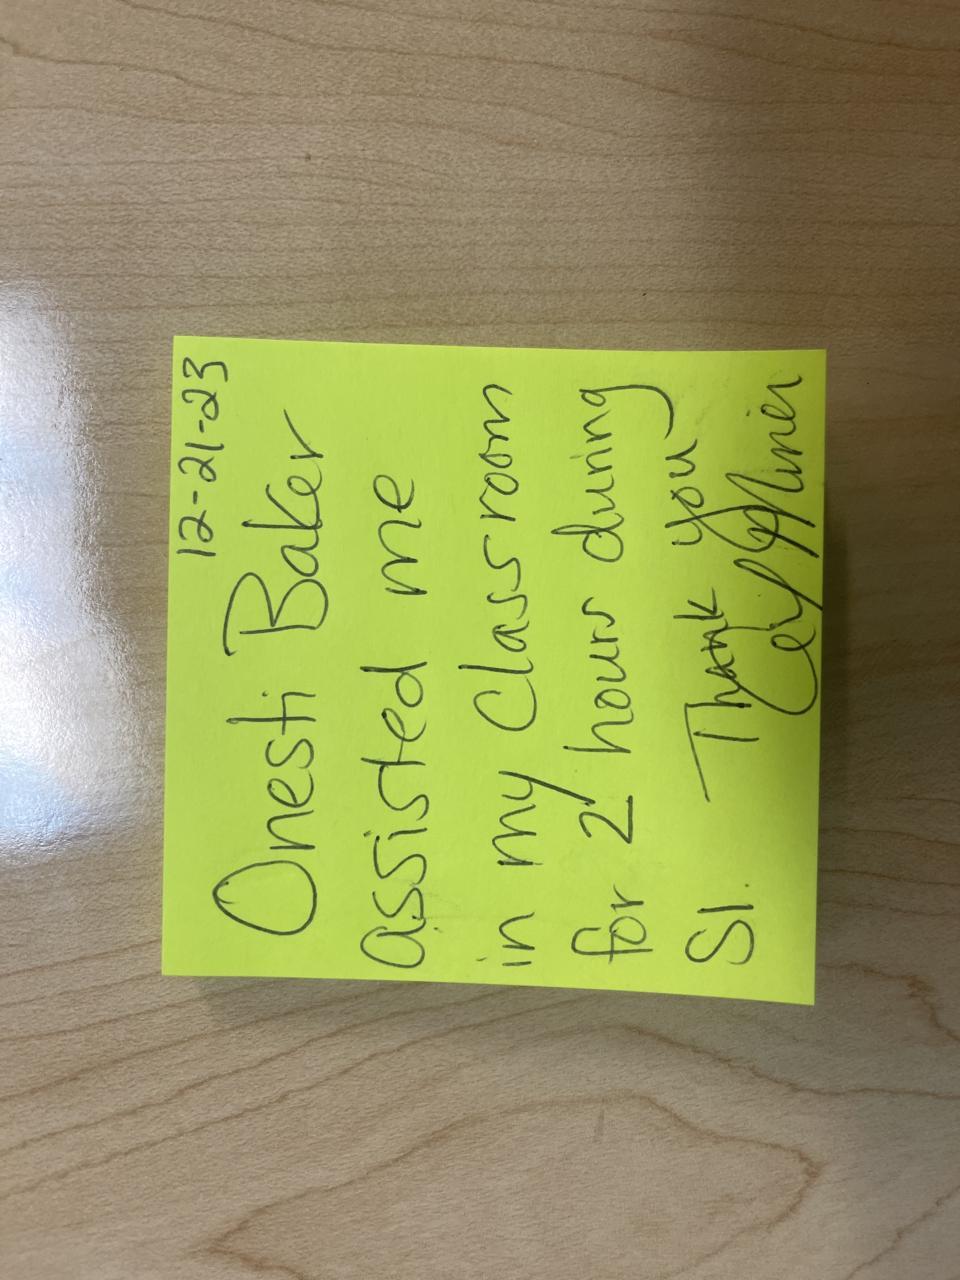 12-21-23
Onesti Baker
assisted me
in my classroom
for 2 hours during
SI. Thank you